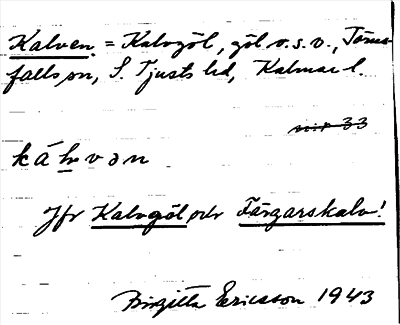 Kalven. = Kalvgöl, göl o.s.o., Törns-
falls sn, S. Tjusts hd, Kalmar l.
nir 33
k á l v ə n
Jfr Kalvgöl och Färgarskalv!
Birgitta Ericsson 1943